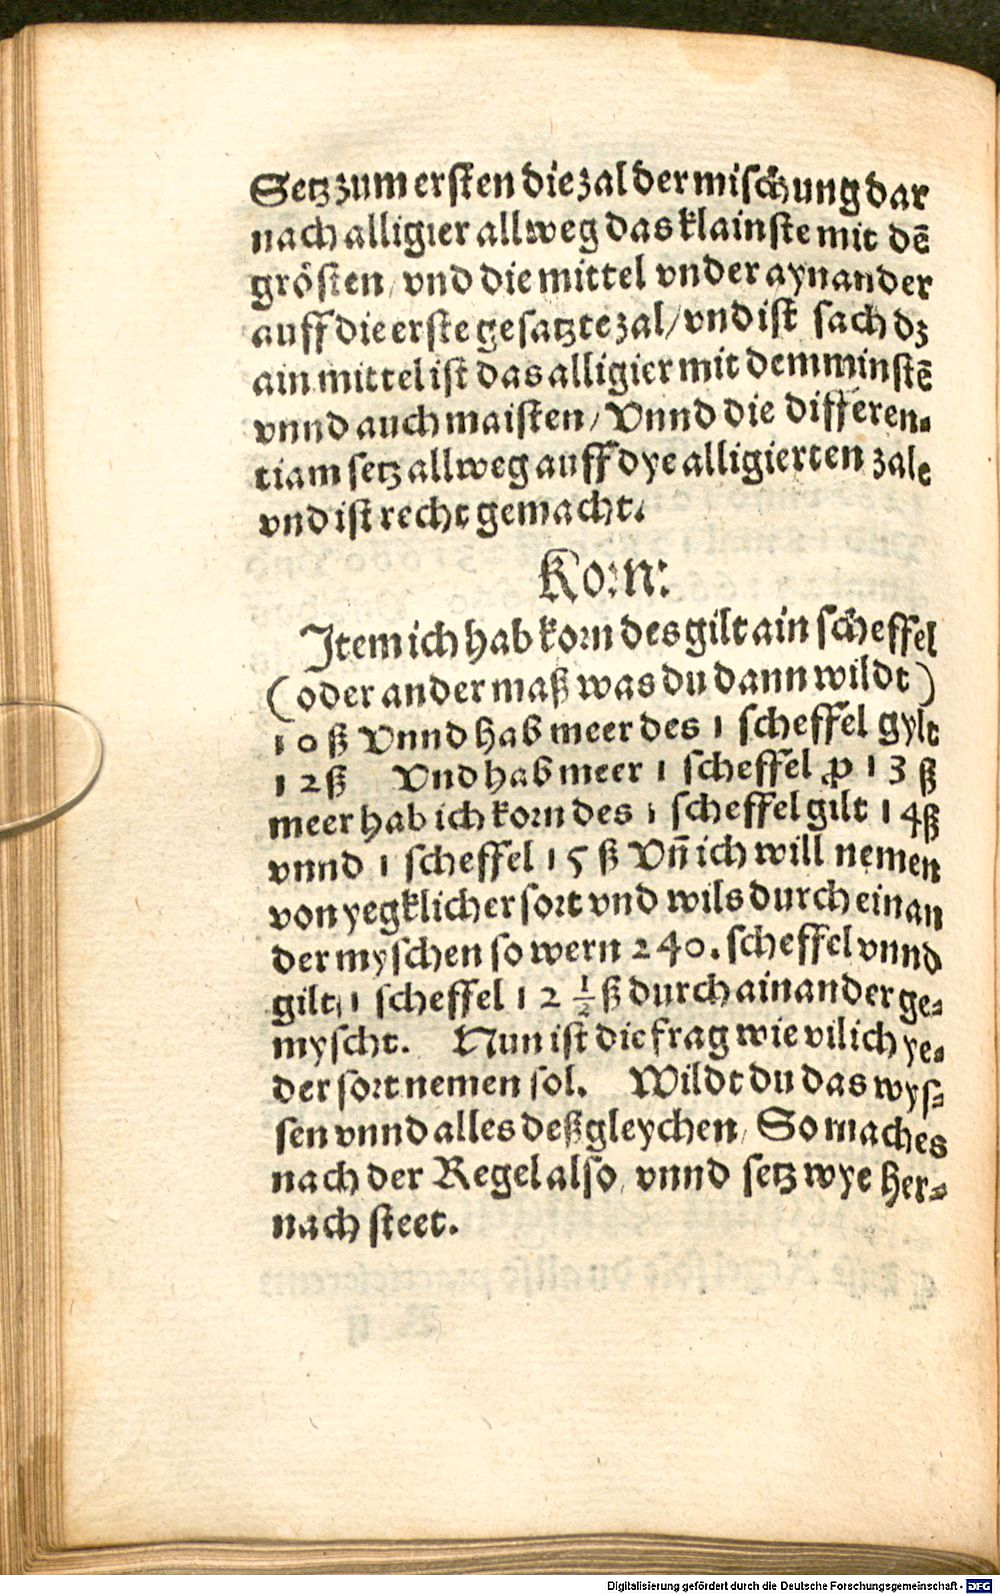 Setz zum ersten die zal der mischung dar
nach alligier allweg das klainste mit dē
grösten/ vnd die mittel vnder aynander
auff die erste gesatzte zal/ vnd ist sach dz
ain mittel ist das alligier mit dem minstē
vnnd auch maisten/ Vnnd die differen-
tiam setz allweg auff dye alligierten zale
vnd ist recht gemacht.
Korn:
Item ich hab korn des gilt ain scheffel
(oder ander maß was du dann wildt)
10 ß Vnnd hab meer des 1 scheffel gylt
12 ß Vnd hab meer 1 scheffel ꝓ 13 ß
meer hab ich korn des 1 scheffel gilt 14 ß
vnnd 1 scheffel 15 ß Vn̄ ich will nemen
von yegklicher sort vnd wils durch einan
der myschen so wern 240. scheffel vnnd
gilt/ 1 scheffel 12 ½ ß durch ainander ge-
myscht. Nun ist die frag wie vil ich ye-
der sort nemen sol. Wildt du das wys-
sen vnnd alles deß gleychen/ So mach es
nach der Regel also/ vnnd setz wye her-
nach steet.
Digitalisierung gefördert durch die Deutsche Forschungsgemeinschaft - DFG